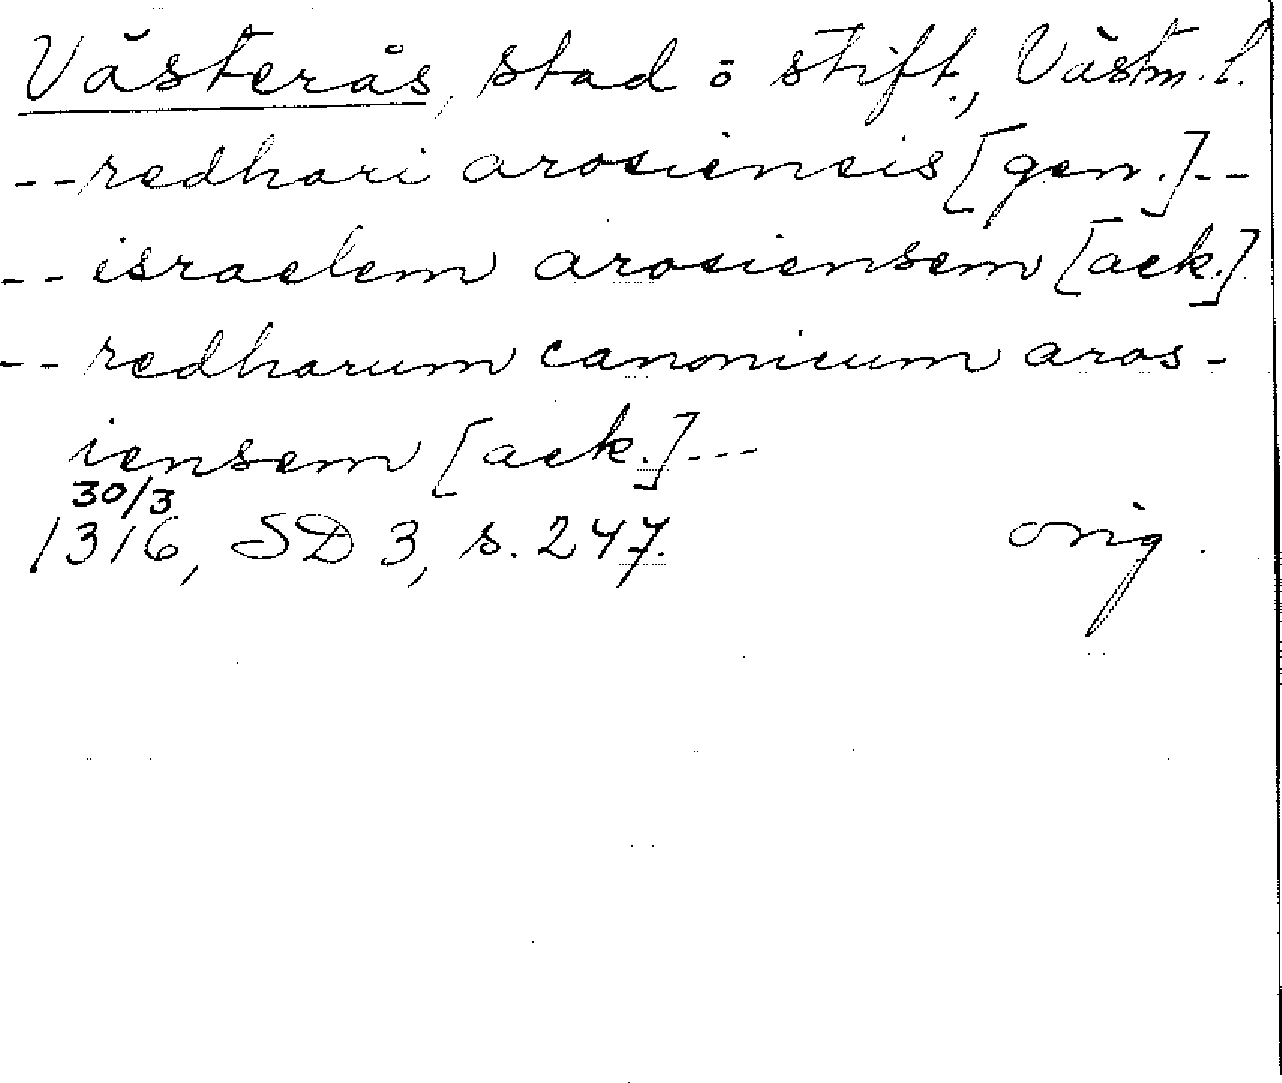 Västerås, stad o stift., Västm. l.
--redhari arosiensis [gen.]--
-- israelem arosiensem [ack.]
-- redharum canonicum aros-
iensem [ack.]---
30/3
1316, SD 3, s. 247.
orig.